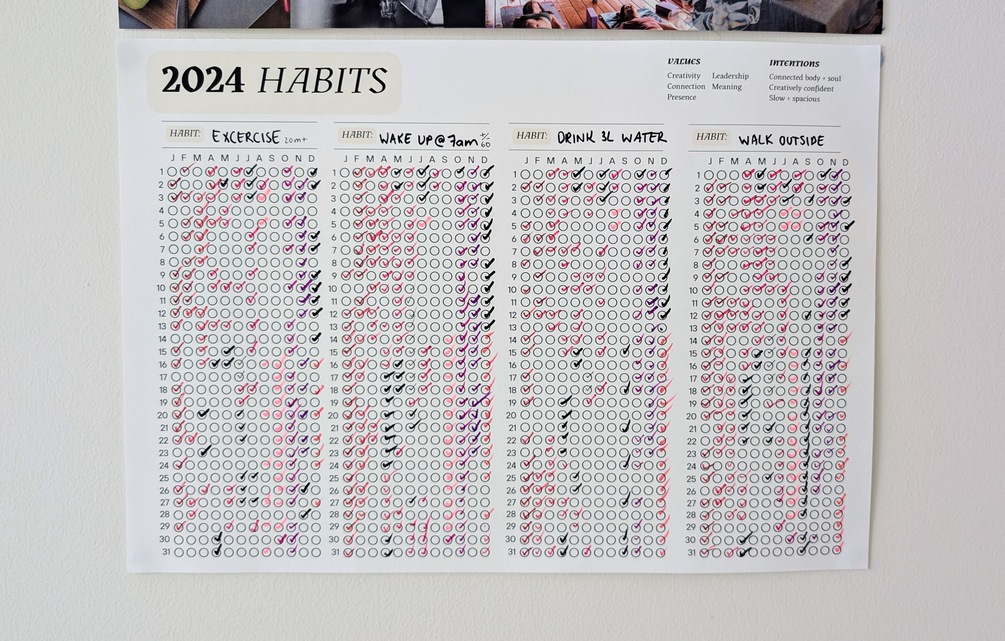 2024 HABITS
VALUES
Creativity Leadership
Connection Meaning
Presence
INTENTIONS
Connected body + soul
Creatively confident
Slow + spacious
HABIT: EXCERCISE 20m+
HABIT: WAKE UP @ 7am +/- 60
HABIT: DRINK 3L WATER
HABIT: WALK OUTSIDE
J F M A M J J A S O N D
J F M A M J J A S O N D
J F M A M J J A S O N D
J F M A M J J A S O N D
1 1 1 1
2 2 2 2
3 3 3 3
4 4 4 4
5 5 5 5
6 6 6 6
7 7 7 7
8 8 8 8
9 9 9 9
10 10 10 10
11 11 11 11
12 12 12 12
13 13 13 13
14 14 14 14
15 15 15 15
16 16 16 16
17 17 17 17
18 18 18 18
19 19 19 19
20 20 20 20
21 21 21 21
22 22 22 22
23 23 23 23
24 24 24 24
25 25 25 25
26 26 26 26
27 27 27 27
28 28 28 28
29 29 29 29
30 30 30 30
31 31 31 31